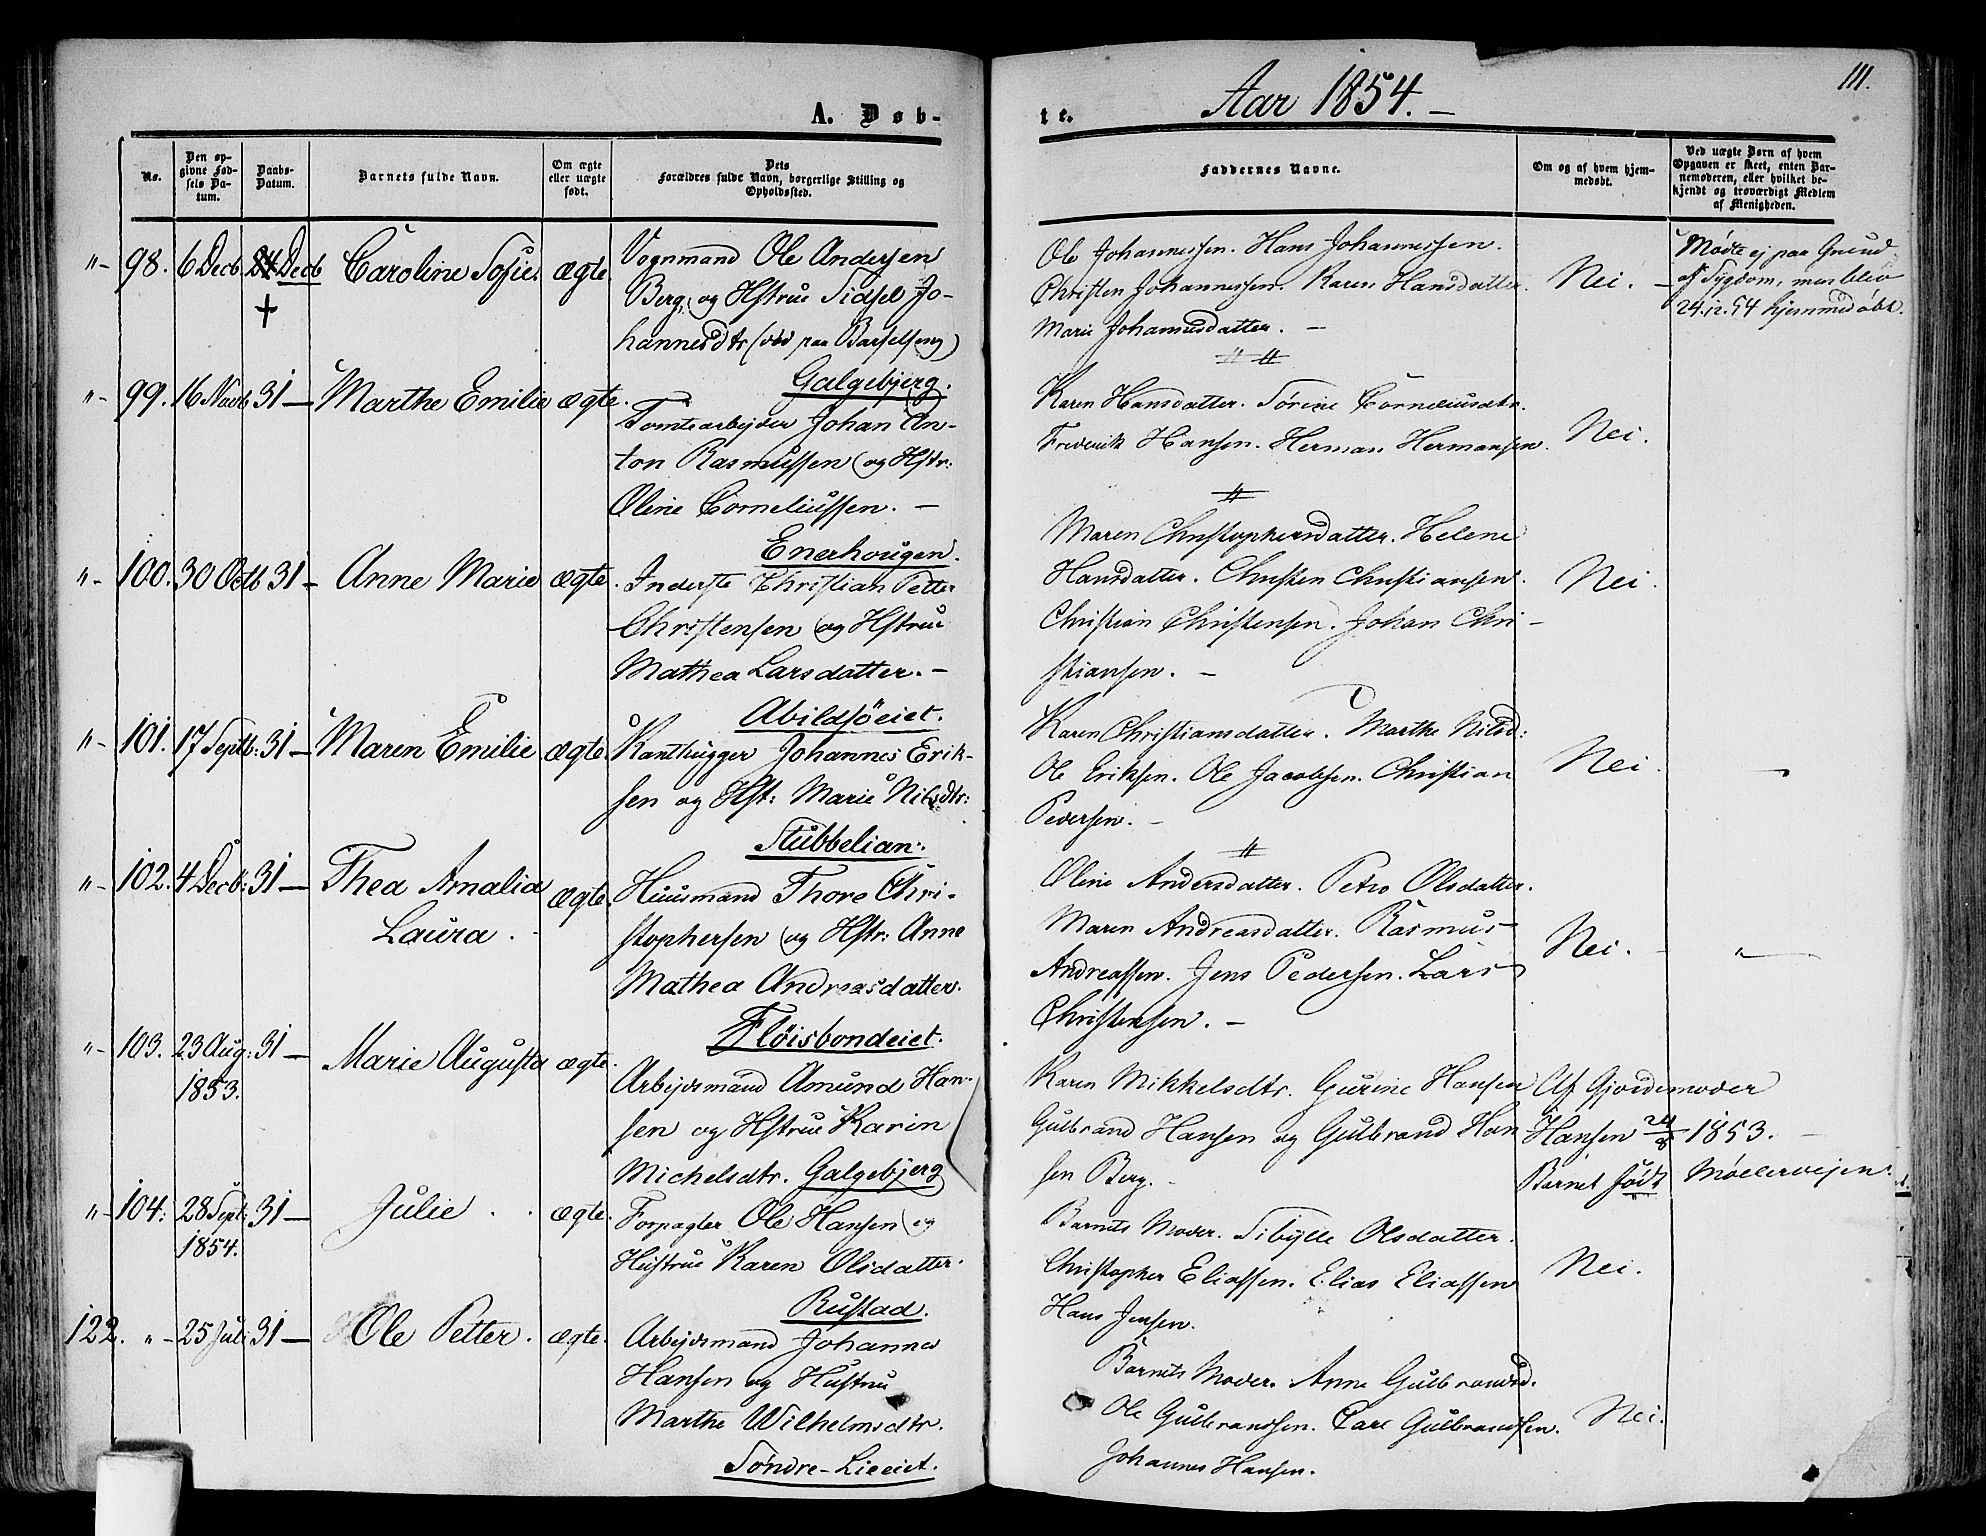 A. Døb-
te.
Aar 1854. —
111.
No.
Den op-
givne Fød-
sels Da-
tum.
Daabs-
Datum.
Barnets fulde Navn.
Om ægte
eller uægte
født.
Dets
Forældres fulde Navn, borgerlige Stilling og
Opholdssted.
Faddernes Navne.
Om og af hvem hjem-
medøbt.
Ved uægte Børn af hvem
Opgaven er skeet, enten Bar-
nemoderen, eller hvilket be-
kjendt og troværdigt Medlem
af Menigheden.
"- 98. 6 Decb. 24 Decb Caroline Sofie. ægte.
+
Vognmand Ole Andersen
Berg, og Hstrue Sidsel Jo-
hannesdtr (død paa Barselseng)
Galgebjerg.
Ole Johannessen. Hans Johannessen.
Christen Johannessen. Karen Hansdatter.
Marie Johannesdatter. —
Nei. —
Mødte ej paa Grund
af Sygdom, men blev
24.12.54 hjemmedøbt.
"- 99. 16 Novb 31 — Marthe Emilie ægte.
Tomtearbejder Johan An-
ton Rasmussen og Hstr:
Oline Corneliussen. —
Enerhougen.
Karen Hansdatter. Sørine Corneliusdtr.
Frederik Hansen. Herman Hermansen.
Nei.
"- 100. 30 Octb 31 — Anne Marie ægte.
Inderste Christian Petter
Christensen og Hstrue
Mathea Larsdatter. —
Abildsöeiet.
Maren Christophersdatter. Helene
Hansdatter. Christen Christiansen.
Christian Christensen. Johan Chri-
stiansen. —
Nei.
"- 101. 17 Septb: 31 — Maren Emilie ægte.
Kanthugger Johannes Erik-
sen og Hst: Marie Nilsdtr:
Stubbelian.
Karen Christiansdatter. Marthe Nilsd:
Ole Eriksen. Ole Jacobsen. Christian
Pedersen. —
Nei.
"- 102. 4 Decb: 31 — Thea Amalia
Laura. ægte.
Huusmand Thore Chri-
stophersen og Hstr: Anne
Mathea Andreasdatter.
Fløisbondeiet.
Oline Andersdatter. Petro Olsdatter.
Maren Andreasdatter. Rasmus
Andreassen. Jens Pedersen. Lars
Christensen. —
Nei.
"- 103. 23 Aug: 31 — Marie Augusta ægte.
1853.
Arbejdsmand Amund Han-
sen og Hstrue Karin
Michelsdtr. Galgebjerg
Karen Mikkelsdtr. Gurine Hansen
Gulbrand Hansen og Gulbrand Han
sen Berg.
Af Gjordemoder
Hansen 24/8 1853. —
Barnet født Møllervejen.
"- 104. 28 Sept: 31 — Julie ægte.
1854.
Forpagter Ole Hansen og
Hustrue Karen Olsdatter.
Rustad.
Barnets Moder. Sibylle Olsdatter.
Christopher Eliassen. Elias Eliassen
Hans Jensen.
Nei.
122. "- 25 Juli 31 — Ole Petter. ægte.
Arbejdsmand Johannes
Hansen og Hustru
Marthe Wilhelmsdtr.
Søndre-Lieeiet.
Barnets Moder. Anne Gulbrandsd.
Ole Gulbrandsen. Carl Gulbrandsen.
Johannes Hansen.
Nei.